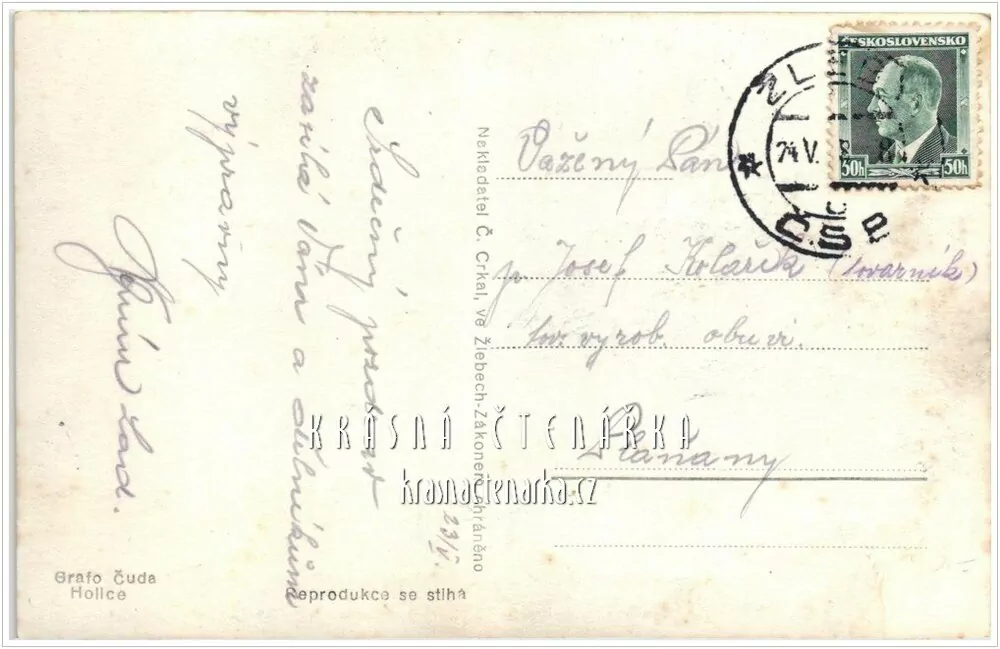 Srdečný pozdrav
zasílá Vám a dělníkům
výpravny
Lad.
23/V.
Vážený Pán
p Josef Kolařík (továrník)
tov. výrob. obuvi.
Plaňany
Nakladatel Č. Crkal, ve Žlebech-Zákonem chráněno
Grafo Čuda
Holice
Reprodukce se stíhá
ČESKOSLOVENSKO
50h 50h
24 V.
ČSR
KRÁSNÁ ČTENÁŘKA
krasnactenarka.cz